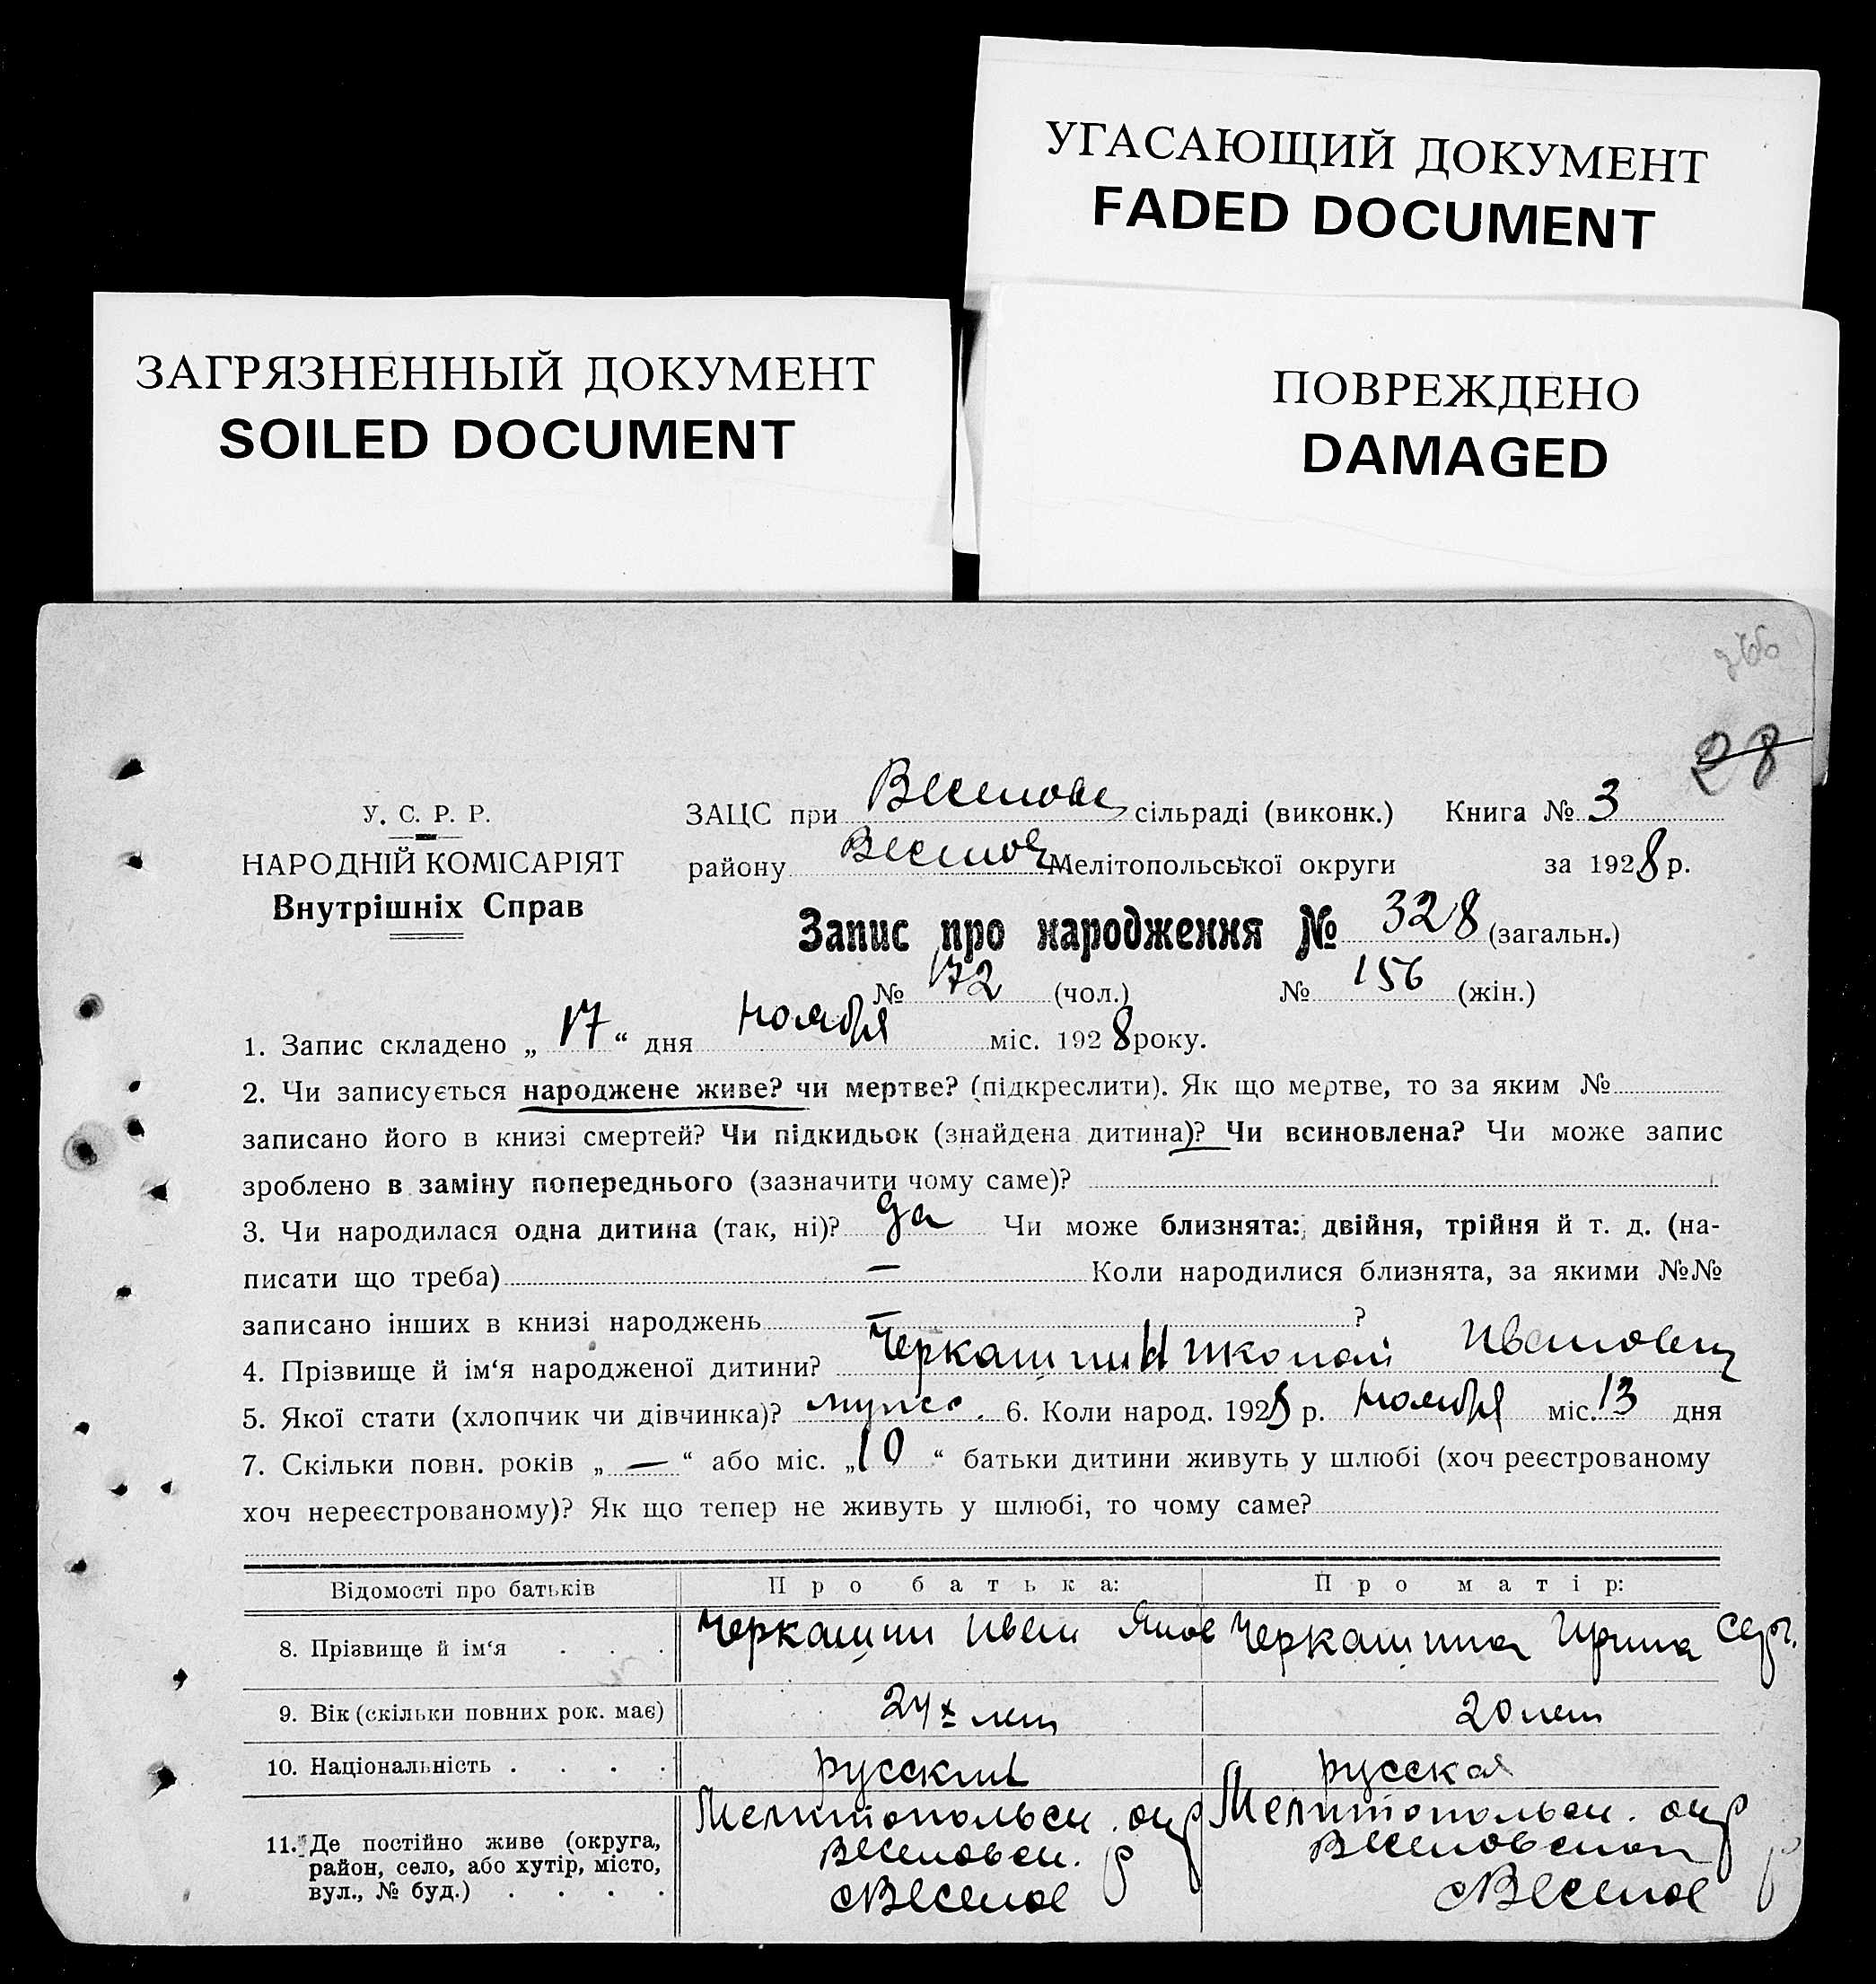 УГАСАЮЩИЙ ДОКУМЕНТ
FADED DOCUMENT
ЗАГРЯЗНЕННЫЙ ДОКУМЕНТ
SOILED DOCUMENT
ПОВРЕЖДЕНО
DAMAGED
28
У. С. Р. Р.
НАРОДНІЙ КОМІСАРІЯТ
Внутрішніх Справ
ЗАЦС при Веселовс сільраді (виконк.) Книга № 3
району Веселов Мелітопольської округи за 1928 р.
Запис про народження № 328 (загальн.)
№ 172 (чол.) № 156 (жін.)
1. Запис складено „ 17 “ дня ноября міс. 1928 року.
2. Чи записується народжене живе? чи мертве? (підкреслити). Як що мертве, то за яким №
записано його в книзі смертей? Чи підкидьок (знайдена дитина)? Чи всиновлена? Чи може запис
зроблено в заміну попереднього (зазначити чому саме)?
3. Чи народилася одна дитина (так, ні)? да Чи може близнята: двійня, трійня й т. д. (на-
писати що треба) — Коли народилися близнята, за якими №№
записано інших в книзі народжень — ?
4. Прізвище й ім‘я народженої дитини? Черкашин Николай Иванович
5. Якої стати (хлопчик чи дівчинка)? мужс. 6. Коли народ. 1928 р. ноября міс. 13 дня
7. Скільки повн. років „ — “ або міс. „ 10 “ батьки дитини живуть у шлюбі (хоч реєстрованому
хоч нереєстрованому)? Як що тепер не живуть у шлюбі, то чому саме?
Відомості про батьків Про батька: Про матір:
8. Прізвище й ім‘я . . . Черкашин Иван Яков Черкашина Ирина Серг.
9. Вік (скільки повних рок. має) 24х лет 20 лет
10. Національність . . . . русский русская
11. Де постійно живе (округа, район, село, або хутір, місто, вул., № буд.) . . . .
Мелитопольск. окр Мелитопольск. окр
Веселовск. р Веселовского р
с Веселое с Веселое